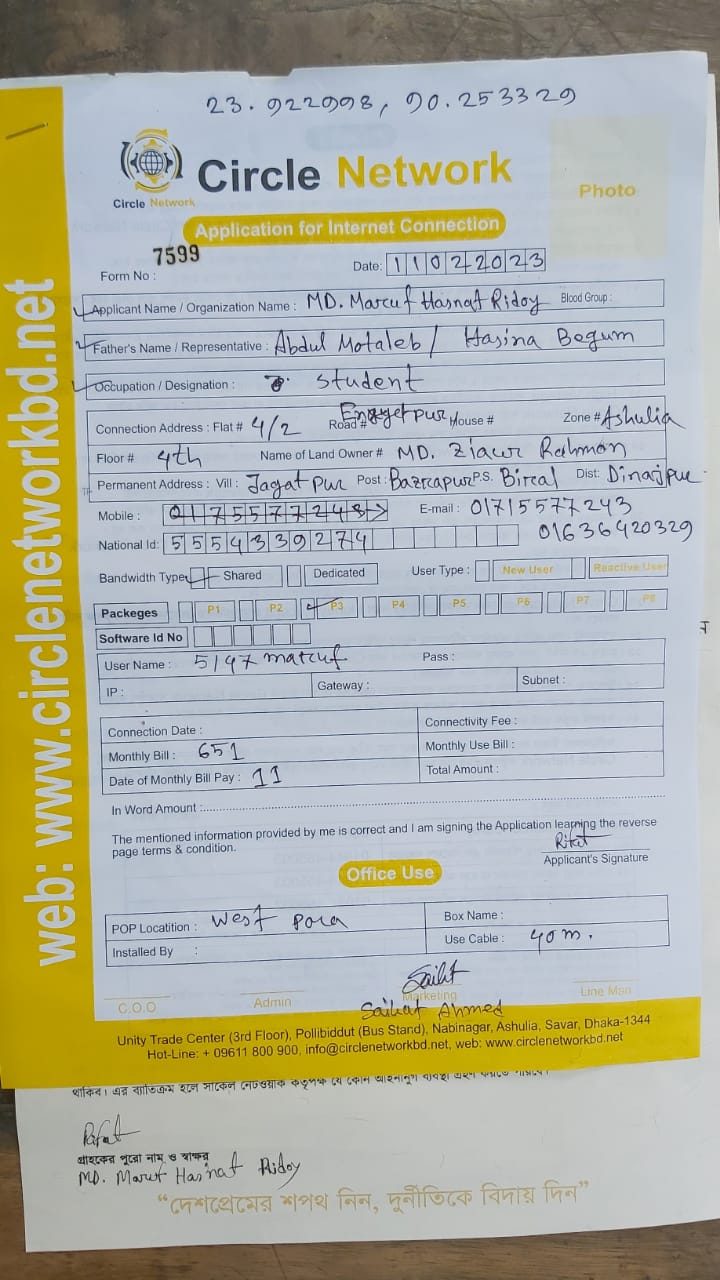 23.922998, 90.253329
Circle Network
Circle Network
Photo
Application for Internet Connection
7599
Form No :
Date: 11022023
Applicant Name / Organization Name : MD. Maruf Hasnat Ridoy Blood Group :
Father's Name / Representative : Abdul Motaleb / Hasina Begum
Occupation / Designation : Student
Connection Address : Flat # 4/2 Road # Enayetpur House # Zone # Ashulia
Floor # 4th Name of Land Owner # MD. Ziaur Rahman
Permanent Address : Vill : Jagat pur Post : Bazrapur P.S. Biral Dist: Dinajpur
Mobile : 0175577243 E-mail : 01715577243
National Id: 5554339274 01636420329
Bandwidth Type Shared Dedicated User Type : New User Reactive User
Packeges P1 P2 P3 P4 P5 P6 P7 P8
Software Id No
User Name : 5/97 maruf Pass :
IP : Gateway : Subnet :
Connection Date : Connectivity Fee :
Monthly Bill : 651 Monthly Use Bill :
Date of Monthly Bill Pay : 11 Total Amount :
In Word Amount :
The mentioned information provided by me is correct and I am signing the Application learning the reverse
page terms & condition.
Applicant's Signature
Office Use
POP Locatition : West para Box Name :
Installed By : Use Cable : 40 m.
C.O.O Admin Marketing Line Man
Saikat Ahmed
Unity Trade Center (3rd Floor), Pollibiddut (Bus Stand), Nabinagar, Ashulia, Savar, Dhaka-1344
Hot-Line: + 09611 800 900, info@circlenetworkbd.net, web: www.circlenetworkbd.net
web: www.circlenetworkbd.net
থাকিব। এর ব্যতিক্রম হলে সার্কেল নেটওয়ার্ক কর্তৃপক্ষ যে কোন আইনানুগ ব্যবস্থা গ্রহণ করতে পারবে।
গ্রাহকের পুরো নাম ও স্বাক্ষর
MD. Maruf Hasnat Ridoy
“দেশপ্রেমের শপথ নিন, দুর্নীতিকে বিদায় দিন”